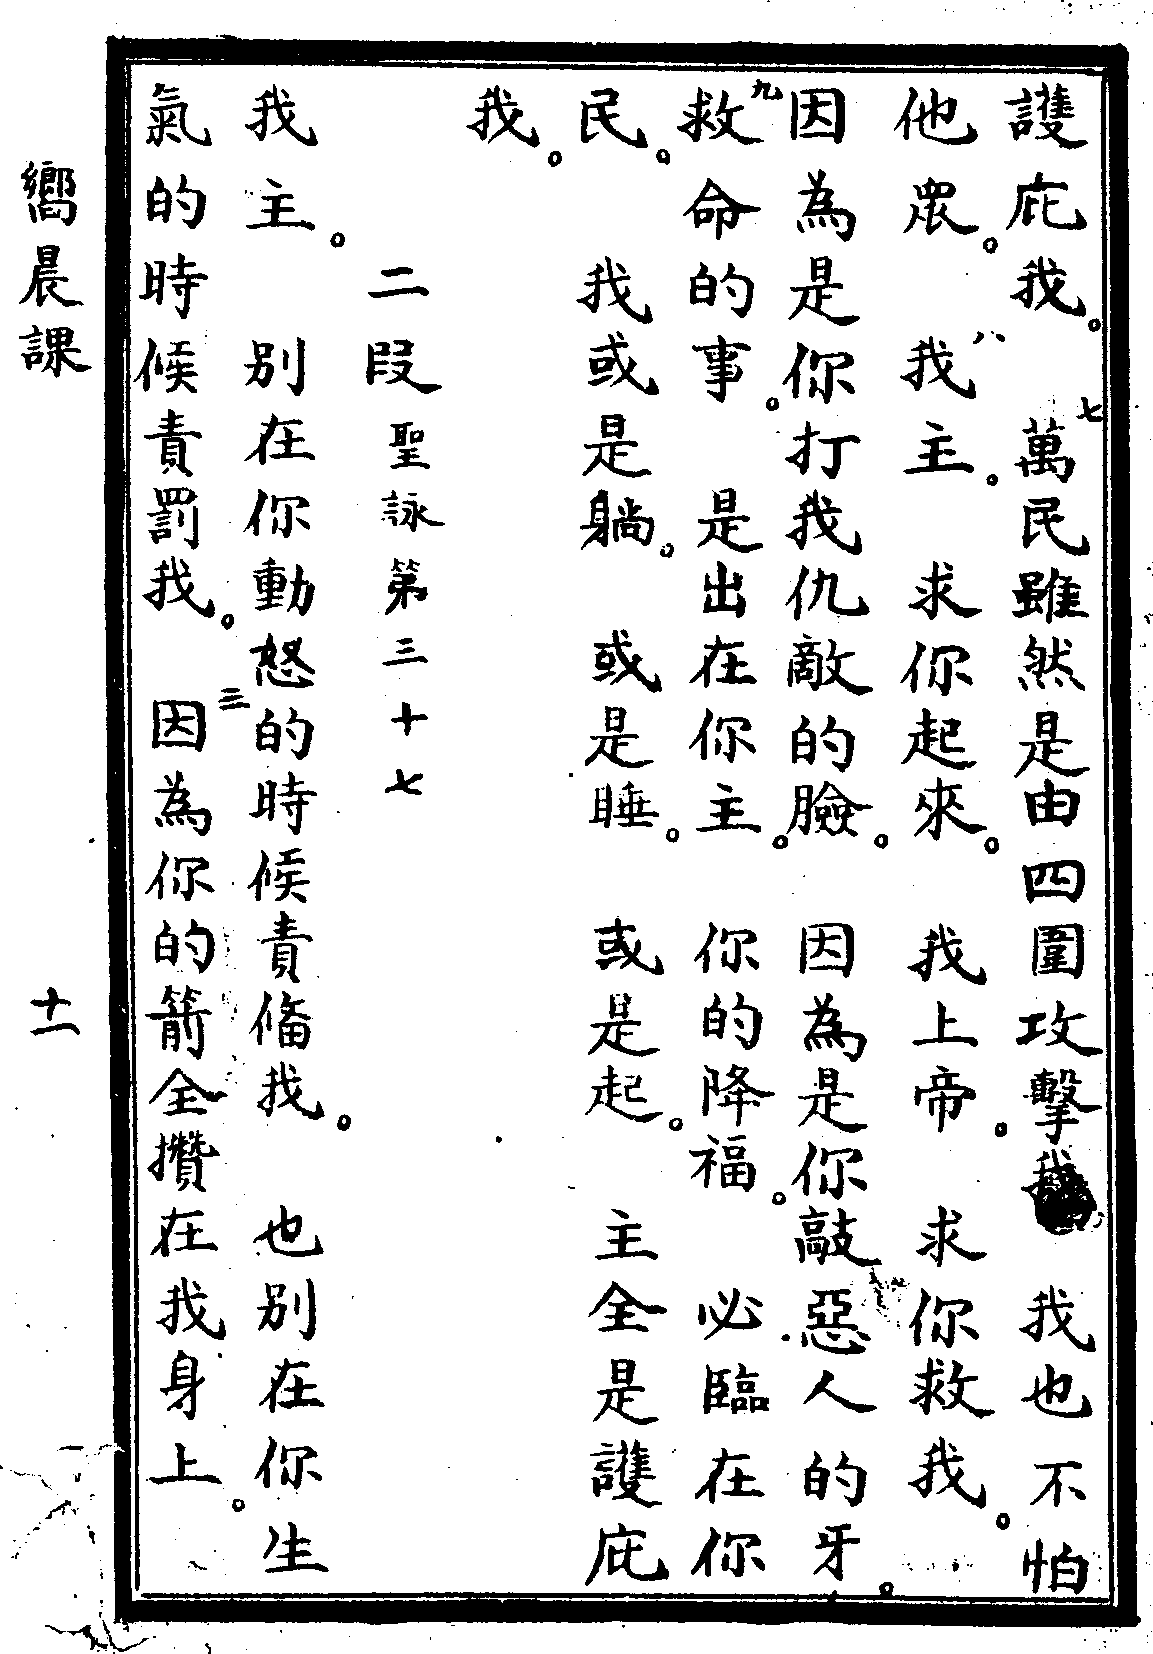 護庇我。 七萬民雖然是由四圍攻擊我 我也不怕
他眾。 八我主。 求你起來。 我上帝。 求你救我。
因為是你打我仇敵的臉。 因為是你敲惡人的牙。
九救命的事。 是出在你主。 你的降福。 必臨在你
民。 我或是躺。 或是睡。 或是起。 主全是護庇
我。
二段 聖詠第三十七
我主。 別在你動怒的時候責俻我。 也別在你生
氣的時候責罰我。 三因為你的箭全攢在我身上。
嚮晨課
十一